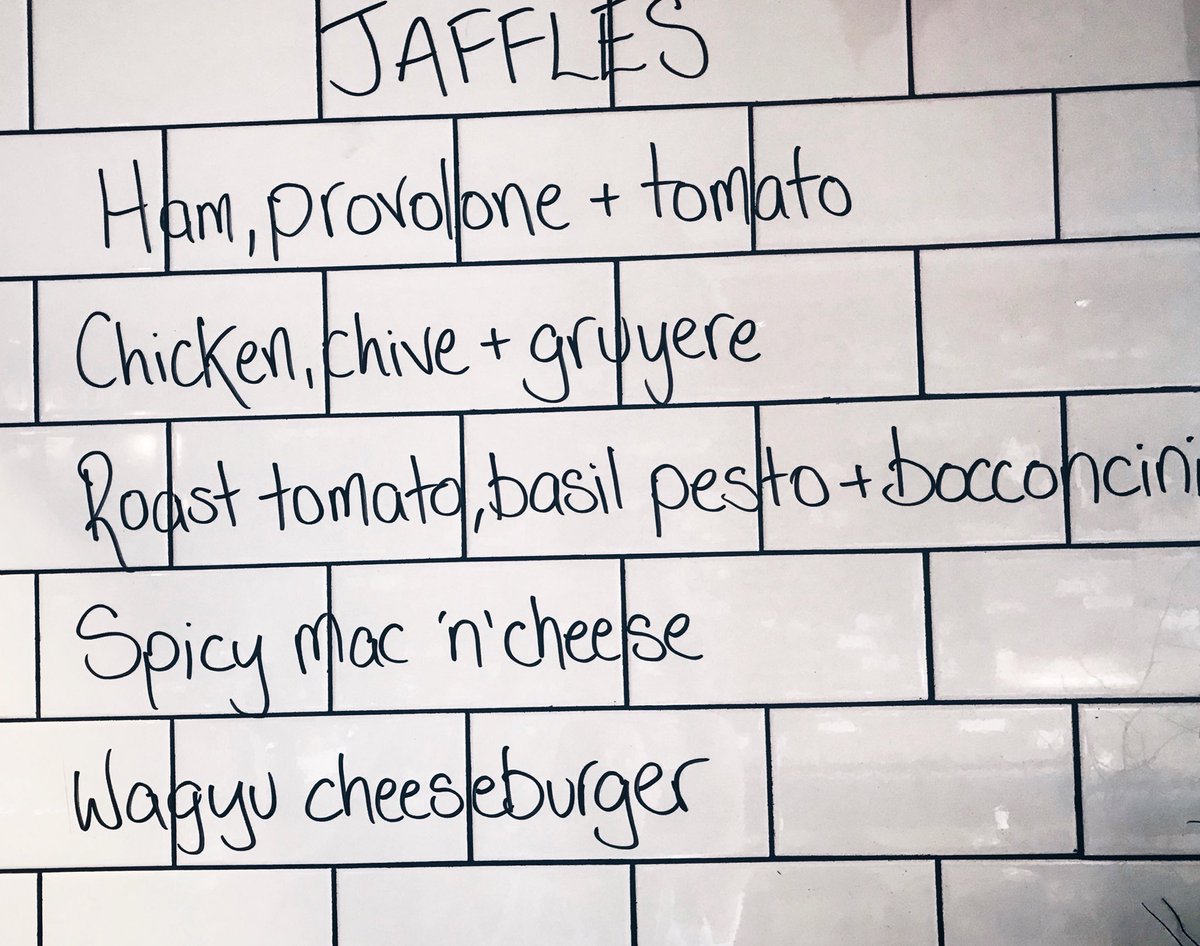 JAFFLES
Ham, provolone + tomato
Chicken, chive + gruyere
Roast tomato, basil pesto + bocconcini
Spicy mac 'n' cheese
Wagyu cheeseburger